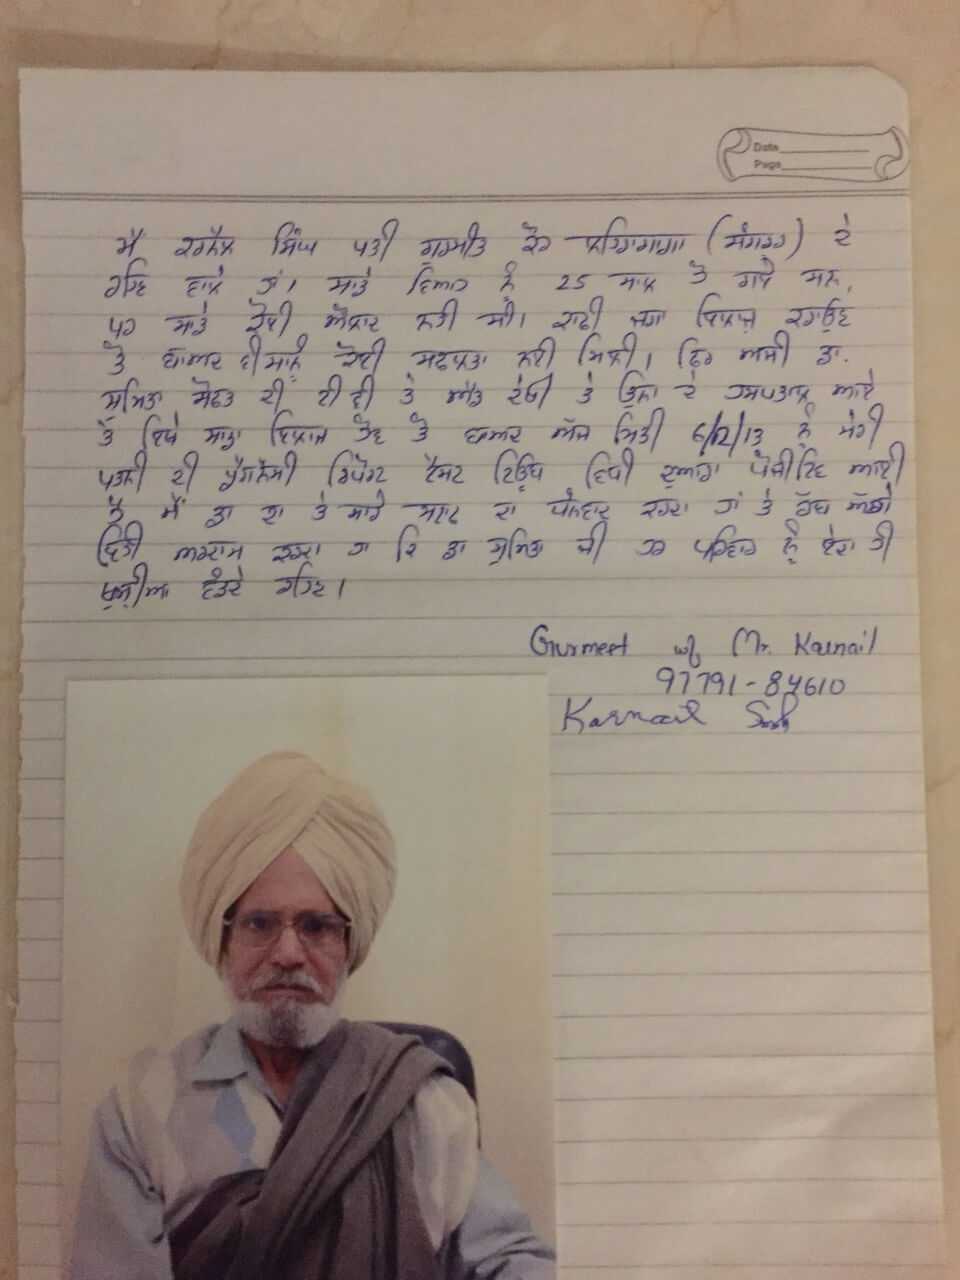 Date
Page
ਮੈ ਕਰਨੈਲ ਸਿੰਘ ਪਤੀ ਗੁਰਮੀਤ ਕੌਰ ਲਹਿਰਾਗਾਗਾ (ਸੰਗਰੂਰ) ਦੇ
ਰਹਿਣ ਵਾਲੇ ਹਾਂ। ਸਾਡੇ ਵਿਆਹ ਨੂੰ 25 ਸਾਲ ਹੋ ਗਏ ਸਨ,
ਪਰ ਸਾਡੇ ਕੋਈ ਔਲਾਦ ਨਹੀ ਸੀ। ਕਾਫੀ ਜਗਾ ਇਲਾਜ ਕਰਾਉਣ
ਤੇ ਬਾਅਦ ਵੀ ਸਾਨੂੰ ਕੋਈ ਸਫਲਤਾ ਨਹੀ ਮਿਲੀ। ਫਿਰ ਅਸੀ ਡਾ.
ਸੁਮਿਤਾ ਸੋਫਤ ਦੀ ਟੀ ਵੀ ਤੇ ਐਡ ਦੇਖੀ ਤੇ ਉਨਾ ਦੇ ਹਸਪਤਾਲ ਆਏ
ਤੇ ਇਥੇ ਸਾਡਾ ਇਲਾਜ ਹੋਣ ਤੋ ਬਾਅਦ ਅੱਜ ਮਿਤੀ 6/12/13 ਨੂੰ ਮੇਰੀ
ਪਤਨੀ ਦੀ ਪ੍ਰੈਗਨੈਸੀ ਰਿਪੋਰਟ ਟੈਸਟ ਟਿਊਬ ਵਿਧੀ ਦੁਆਰਾ ਪੋਜੀਟਿਵ ਆਈ
ਹੈ ਮੈਂ ਡਾ ਦਾ ਤੇ ਸਾਰੇ ਸਟਾਫ ਦਾ ਧੰਨਵਾਦ ਕਰਦਾ ਹਾਂ ਤੇ ਰੱਬ ਅੱਗੇ
ਇਹੀ ਅਰਦਾਸ ਕਰਦਾ ਹਾ ਕਿ ਡਾ ਸੁਮਿਤਾ ਜੀ ਹਰ ਪਰਿਵਾਰ ਨੂੰ ਏਦਾ ਹੀ
ਖੁਸ਼ੀਆ ਵੰਡਦੇ ਰਹਿਣ।
Gurmeet w/o Mr. Karnail
97791-84610
Karnail Singh